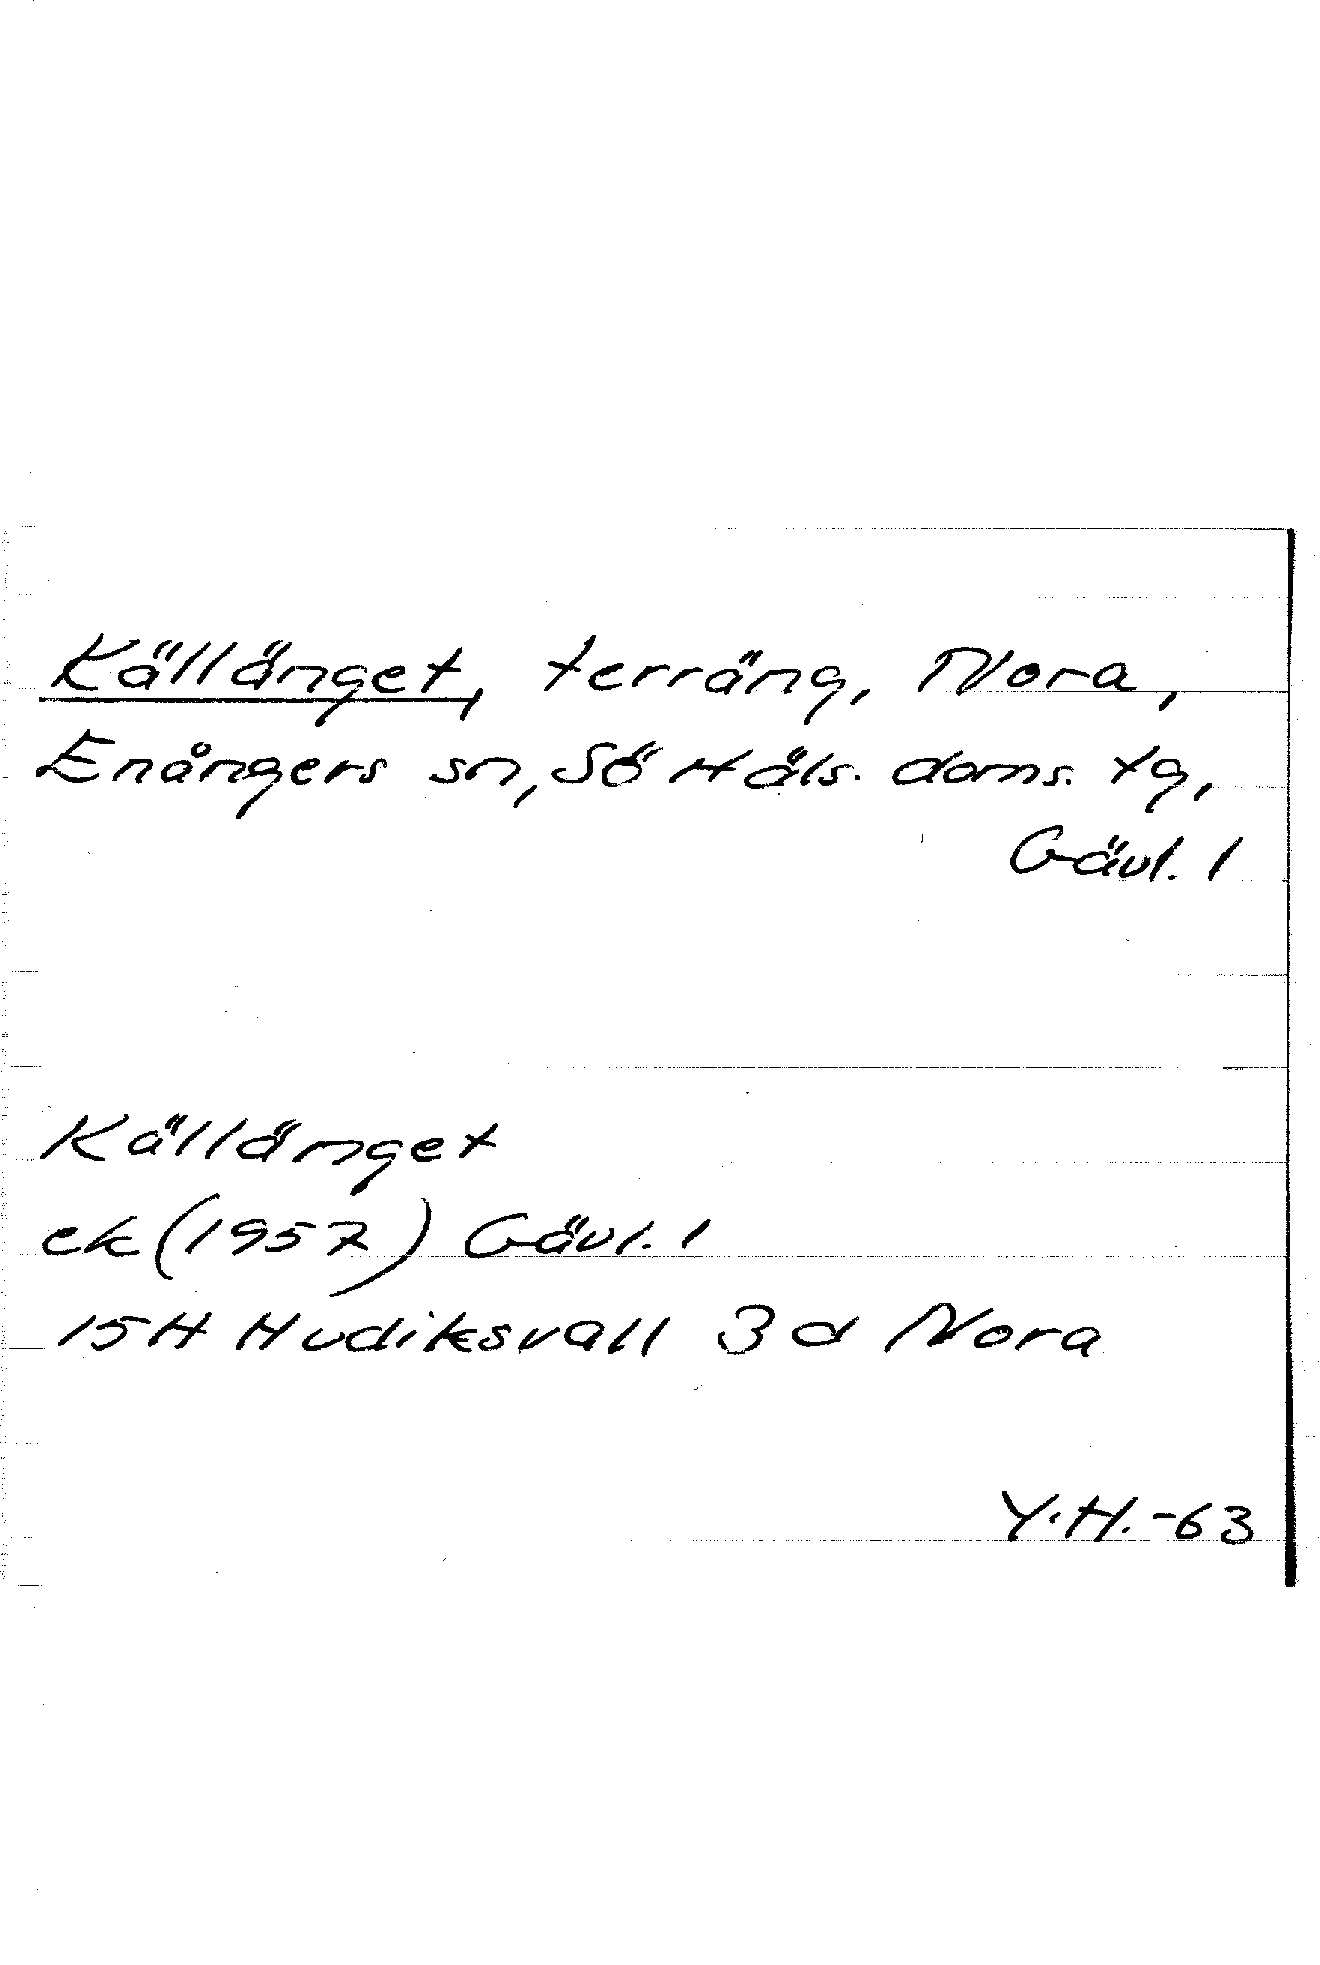 Källänget, terräng, Nora,
Enångers sn, Sö Häls. doms. tg,
Gävl. l
Källänget
ek (1957) Gävl. l
15H Hudiksvall 3 d Nora
Y.H.-63